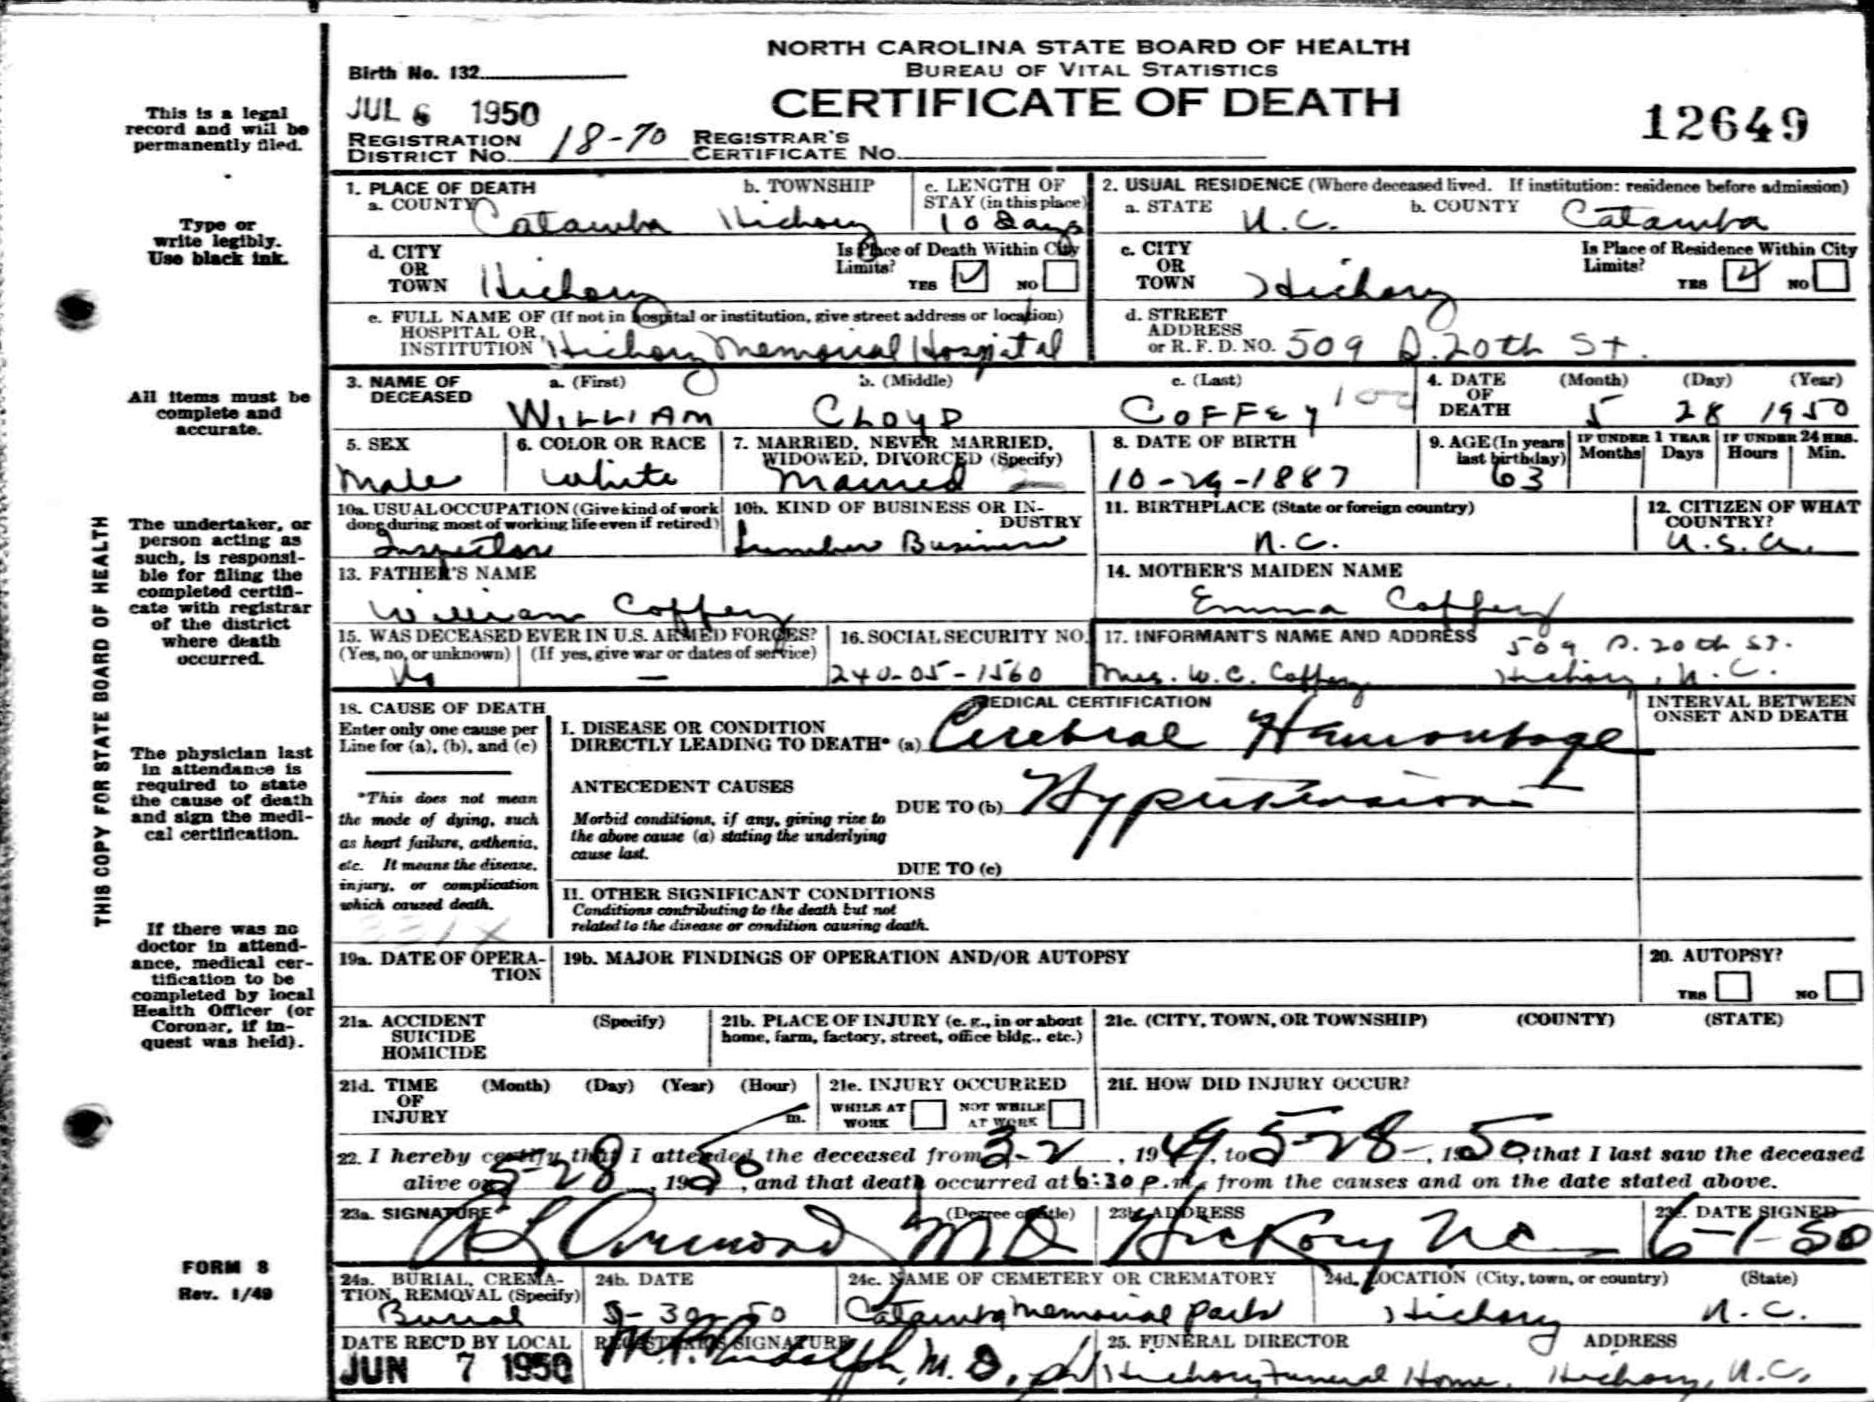 NORTH CAROLINA STATE BOARD OF HEALTH
BUREAU OF VITAL STATISTICS
CERTIFICATE OF DEATH
Birth No. 132
JUL 6 1950
12649
REGISTRATION DISTRICT No. 18-70 REGISTRAR'S CERTIFICATE No.
This is a legal record and will be permanently filed.
Type or write legibly. Use black ink.
All items must be complete and accurate.
The undertaker, or person acting as such, is responsible for filing the completed certificate with registrar of the district where death occurred.
The physician last in attendance is required to state the cause of death and sign the medical certification.
If there was no doctor in attendance, medical certification to be completed by local Health Officer (or Coroner, if inquest was held).
FORM 8
Rev. 1/49
THIS COPY FOR STATE BOARD OF HEALTH
1. PLACE OF DEATH
a. COUNTY Catawba
b. TOWNSHIP Hickory
c. LENGTH OF STAY (in this place) 10 Days
2. USUAL RESIDENCE (Where deceased lived. If institution: residence before admission)
a. STATE N.C. b. COUNTY Catawba
d. CITY OR TOWN Hickory
Is Place of Death Within City Limits? YES NO
c. CITY OR TOWN Hickory
Is Place of Residence Within City Limits? YES NO
e. FULL NAME OF (If not in hospital or institution, give street address or location) HOSPITAL OR INSTITUTION Hickory Memorial Hospital
d. STREET ADDRESS or R. F. D. NO. 509 S. 20th St.
3. NAME OF DECEASED a. (First) b. (Middle) c. (Last)
WILLIAM CLOYD COFFEY
4. DATE OF DEATH (Month) (Day) (Year)
5 28 1950
5. SEX Male
6. COLOR OR RACE White
7. MARRIED, NEVER MARRIED, WIDOWED, DIVORCED (Specify) Married
8. DATE OF BIRTH 10-29-1887
9. AGE (In years last birthday) 63
IF UNDER 1 YEAR Months Days
IF UNDER 24 HRS. Hours Min.
10a. USUAL OCCUPATION (Give kind of work done during most of working life even if retired) Inspector
10b. KIND OF BUSINESS OR INDUSTRY Lumber Business
11. BIRTHPLACE (State or foreign country) N.C.
12. CITIZEN OF WHAT COUNTRY? U.S.A.
13. FATHER'S NAME William Coffey
14. MOTHER'S MAIDEN NAME Emma Coffey
15. WAS DECEASED EVER IN U.S. ARMED FORCES?
(Yes, no, or unknown) (If yes, give war or dates of service)
No —
16. SOCIAL SECURITY NO. 240-05-1560
17. INFORMANT'S NAME AND ADDRESS 509 S. 20th St.
Mrs. W. C. Coffey Hickory, N.C.
18. CAUSE OF DEATH
Enter only one cause per Line for (a), (b), and (c)
*This does not mean the mode of dying, such as heart failure, asthenia, etc. It means the disease, injury, or complication which caused death.
331X
MEDICAL CERTIFICATION
INTERVAL BETWEEN ONSET AND DEATH
I. DISEASE OR CONDITION DIRECTLY LEADING TO DEATH* (a) Cerebral Hemorrhage
ANTECEDENT CAUSES
Morbid conditions, if any, giving rise to the above cause (a) stating the underlying cause last.
DUE TO (b) Hypertension
DUE TO (c)
II. OTHER SIGNIFICANT CONDITIONS
Conditions contributing to the death but not related to the disease or condition causing death.
19a. DATE OF OPERATION
19b. MAJOR FINDINGS OF OPERATION AND/OR AUTOPSY
20. AUTOPSY? YES NO
21a. ACCIDENT SUICIDE HOMICIDE (Specify)
21b. PLACE OF INJURY (e. g., in or about home, farm, factory, street, office bldg., etc.)
21c. (CITY, TOWN, OR TOWNSHIP) (COUNTY) (STATE)
21d. TIME OF INJURY (Month) (Day) (Year) (Hour) m.
21e. INJURY OCCURRED WHILE AT WORK NOT WHILE AT WORK
21f. HOW DID INJURY OCCUR?
22. I hereby certify that I attended the deceased from 3-2, 1949, to 5-28-, 1950, that I last saw the deceased
alive on 5-28, 1950, and that death occurred at 6:30 p.m., from the causes and on the date stated above.
23a. SIGNATURE (Degree or title) 23b. ADDRESS 23c. DATE SIGNED
Ormond MD Hickory NC 6-1-50
24a. BURIAL, CREMATION, REMOVAL (Specify) Burial
24b. DATE 5-30-50
24c. NAME OF CEMETERY OR CREMATORY Catawba Memorial Park
24d. LOCATION (City, town, or county) (State) Hickory N.C.
DATE REC'D BY LOCAL JUN 7 1950
REGISTRAR'S SIGNATURE Rudolph, M.D.
25. FUNERAL DIRECTOR ADDRESS
Hickory Funeral Home, Hickory, N.C.